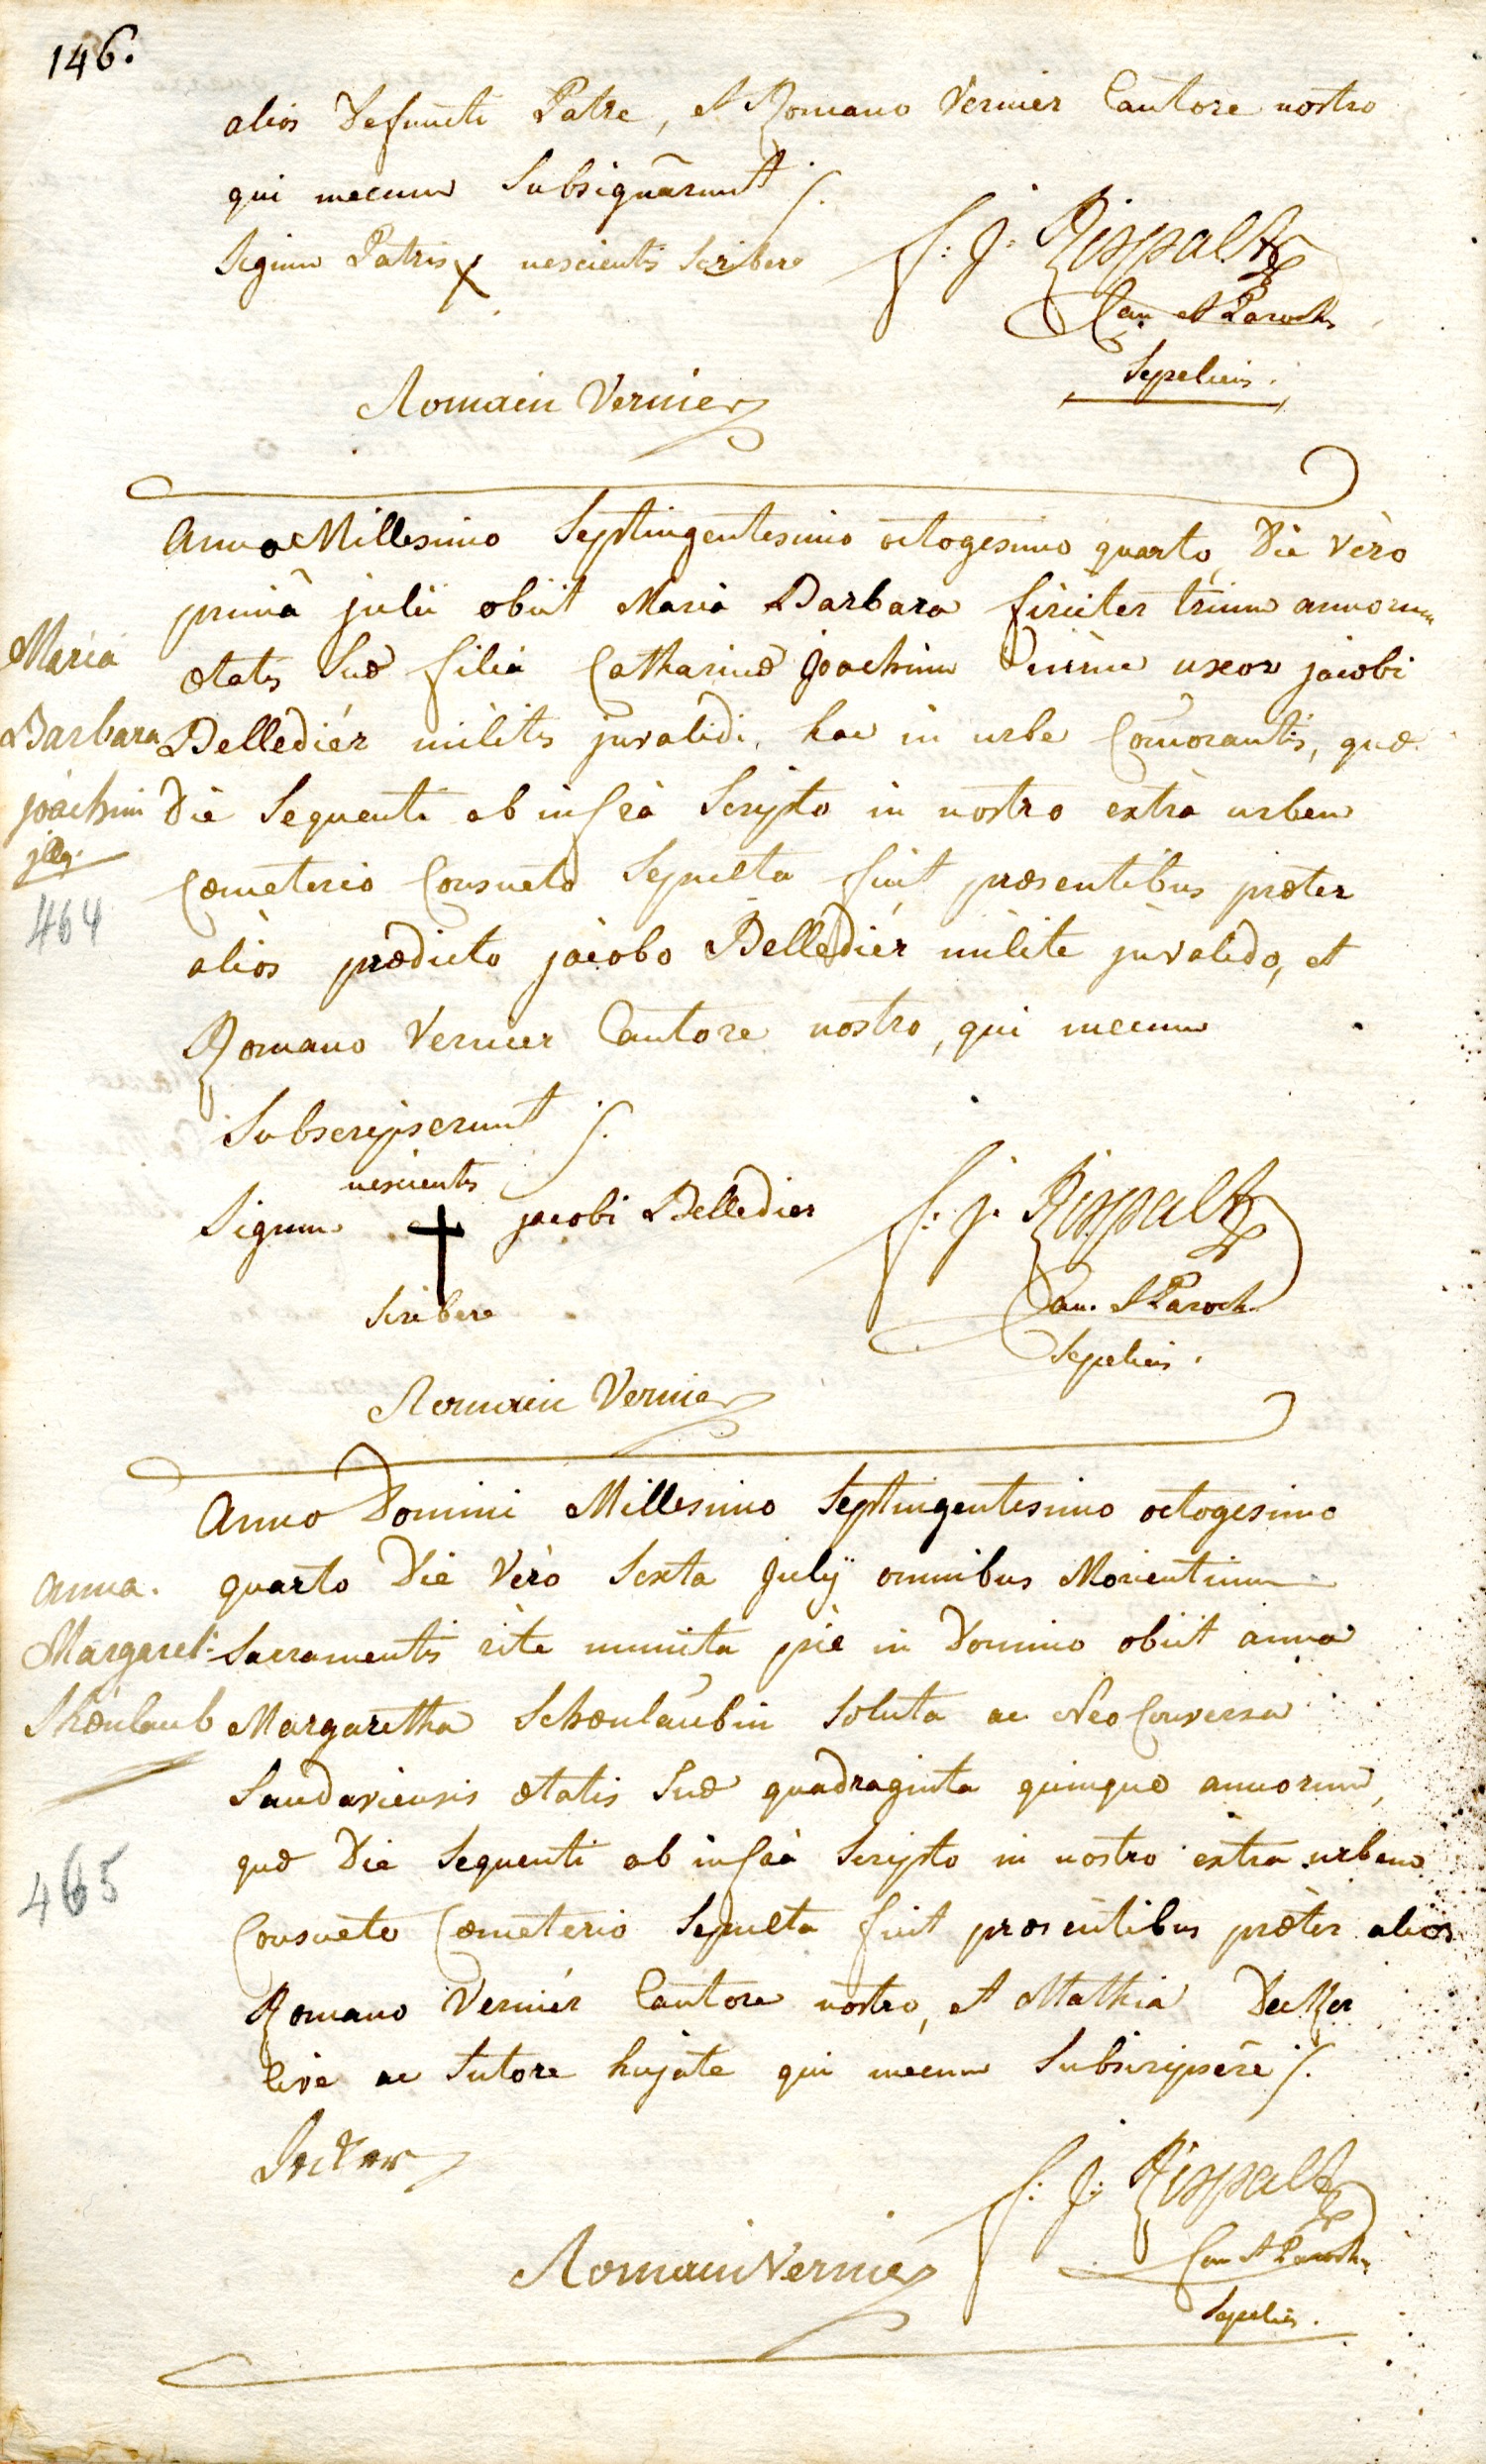 146.
alios Defuncti Patre, et Romano Vernier Cantore nostro
qui mecum Subsignârunt ./.
Signum Patris x nescientis Scribere
f: J: Rispalt
Can et Paroch.
Sepeliens.
Romain Vernier
Anno Millesimo Septingentesimo octogesimo quarto, Die Vèro
primâ julii obiit Maria Barbara Circiter trium annorum
ætatis Suæ filia Catharinæ Joachim uxor jacobi
Belledièr militis jnvalidi, hac in urbe Comorantis, quæ
Die Sequenti ab infrà Scripto in nostro extrà urbem
Cœmeterio Consueto Sepulta fuit præsentibus præter
alios prædicto jacobo Belledièr milite jnvalido, et
Romano Vernier Cantore nostro, qui mecum
Subscripserunt ./.
Maria
Barbara
joachim
jlleg.
464
nescientis
Signum + jacobi Belledier
Scribere
f: j. Rispalt
Can. et Paroch.
Sepeliens.
Romain Vernier
Anno Domini Millesimo Septingentesimo octogesimo
quarto Die Verò Sexta Julÿ omnibus Morientium
Sacramentis ritè munita piè in Domino obiit anna
Margaretha Schœnlaubin Soluta ac NeoConversa
Landaviensis ætatis Suæ quadraginta quinque annorum,
quæ Die Sequenti ab infrà Scripto in nostro extra urbem
Consueto Cœmeterio Sepulta fuit præsentibus præter alios
Romano Vernièr Cantore nostro, et Mathia Decker
Cive ac Sutore hujate qui mecum Subscripsêre ./.
anna.
Margaret:
Shœnlaub
465
Decker
f: J: Rispalt
Can et Paroch.
Sepeliens.
Romain Vernier